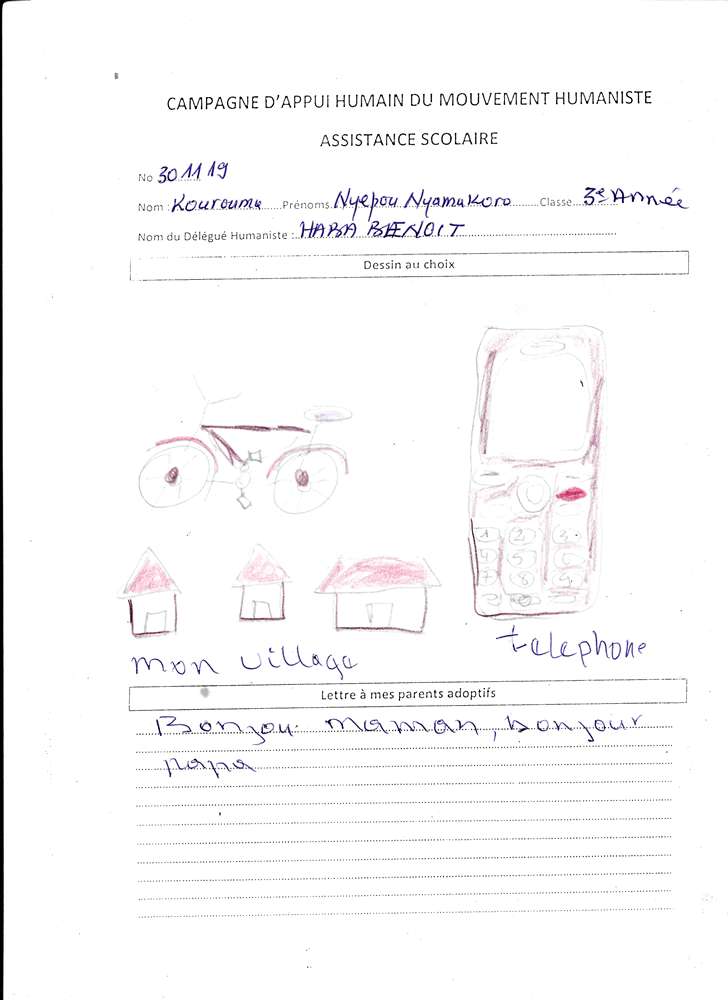 CAMPAGNE D'APPUI HUMAIN DU MOUVEMENT HUMANISTE
ASSISTANCE SCOLAIRE
No 301119
Nom : Kourouma Prénoms Nyepou Nyamakoro Classe 3e Année
Nom du Délégué Humaniste : HABA BENOIT
Dessin au choix
1 2 3
4 5 6
7 8 9
mon village
telephone
Lettre à mes parents adoptifs
Bonjou maman, bonjour
papa